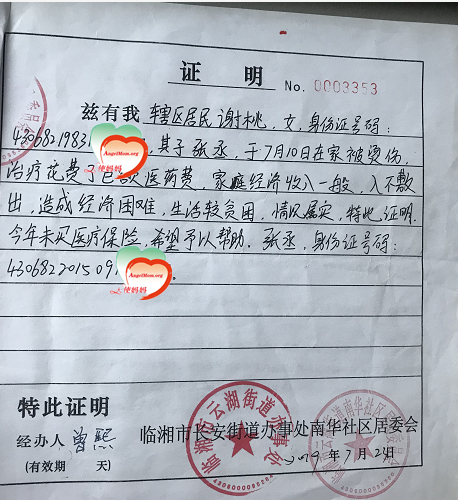 证 明
No. 0003353
兹有我 辖区居民 谢桃，女，身份证号码：
4306821983
AngelMom.org
天使妈妈
其子 张丞，于7月10日在家被烫伤，
治疗花费了 医药费，家庭经济收入一般，入不敷
出，造成经济困难，生活较贫困，情况属实，特此证明。
今年未买医疗保险，希望予以帮助。张丞，身份证号码：
430682201509
AngelMom.org
天使妈妈
特此证明
经办人 曾熙
(有效期 天)
临湘市长安街道办事处南华社区居委会
2019年7月2日
临湘市云湖街道办事处